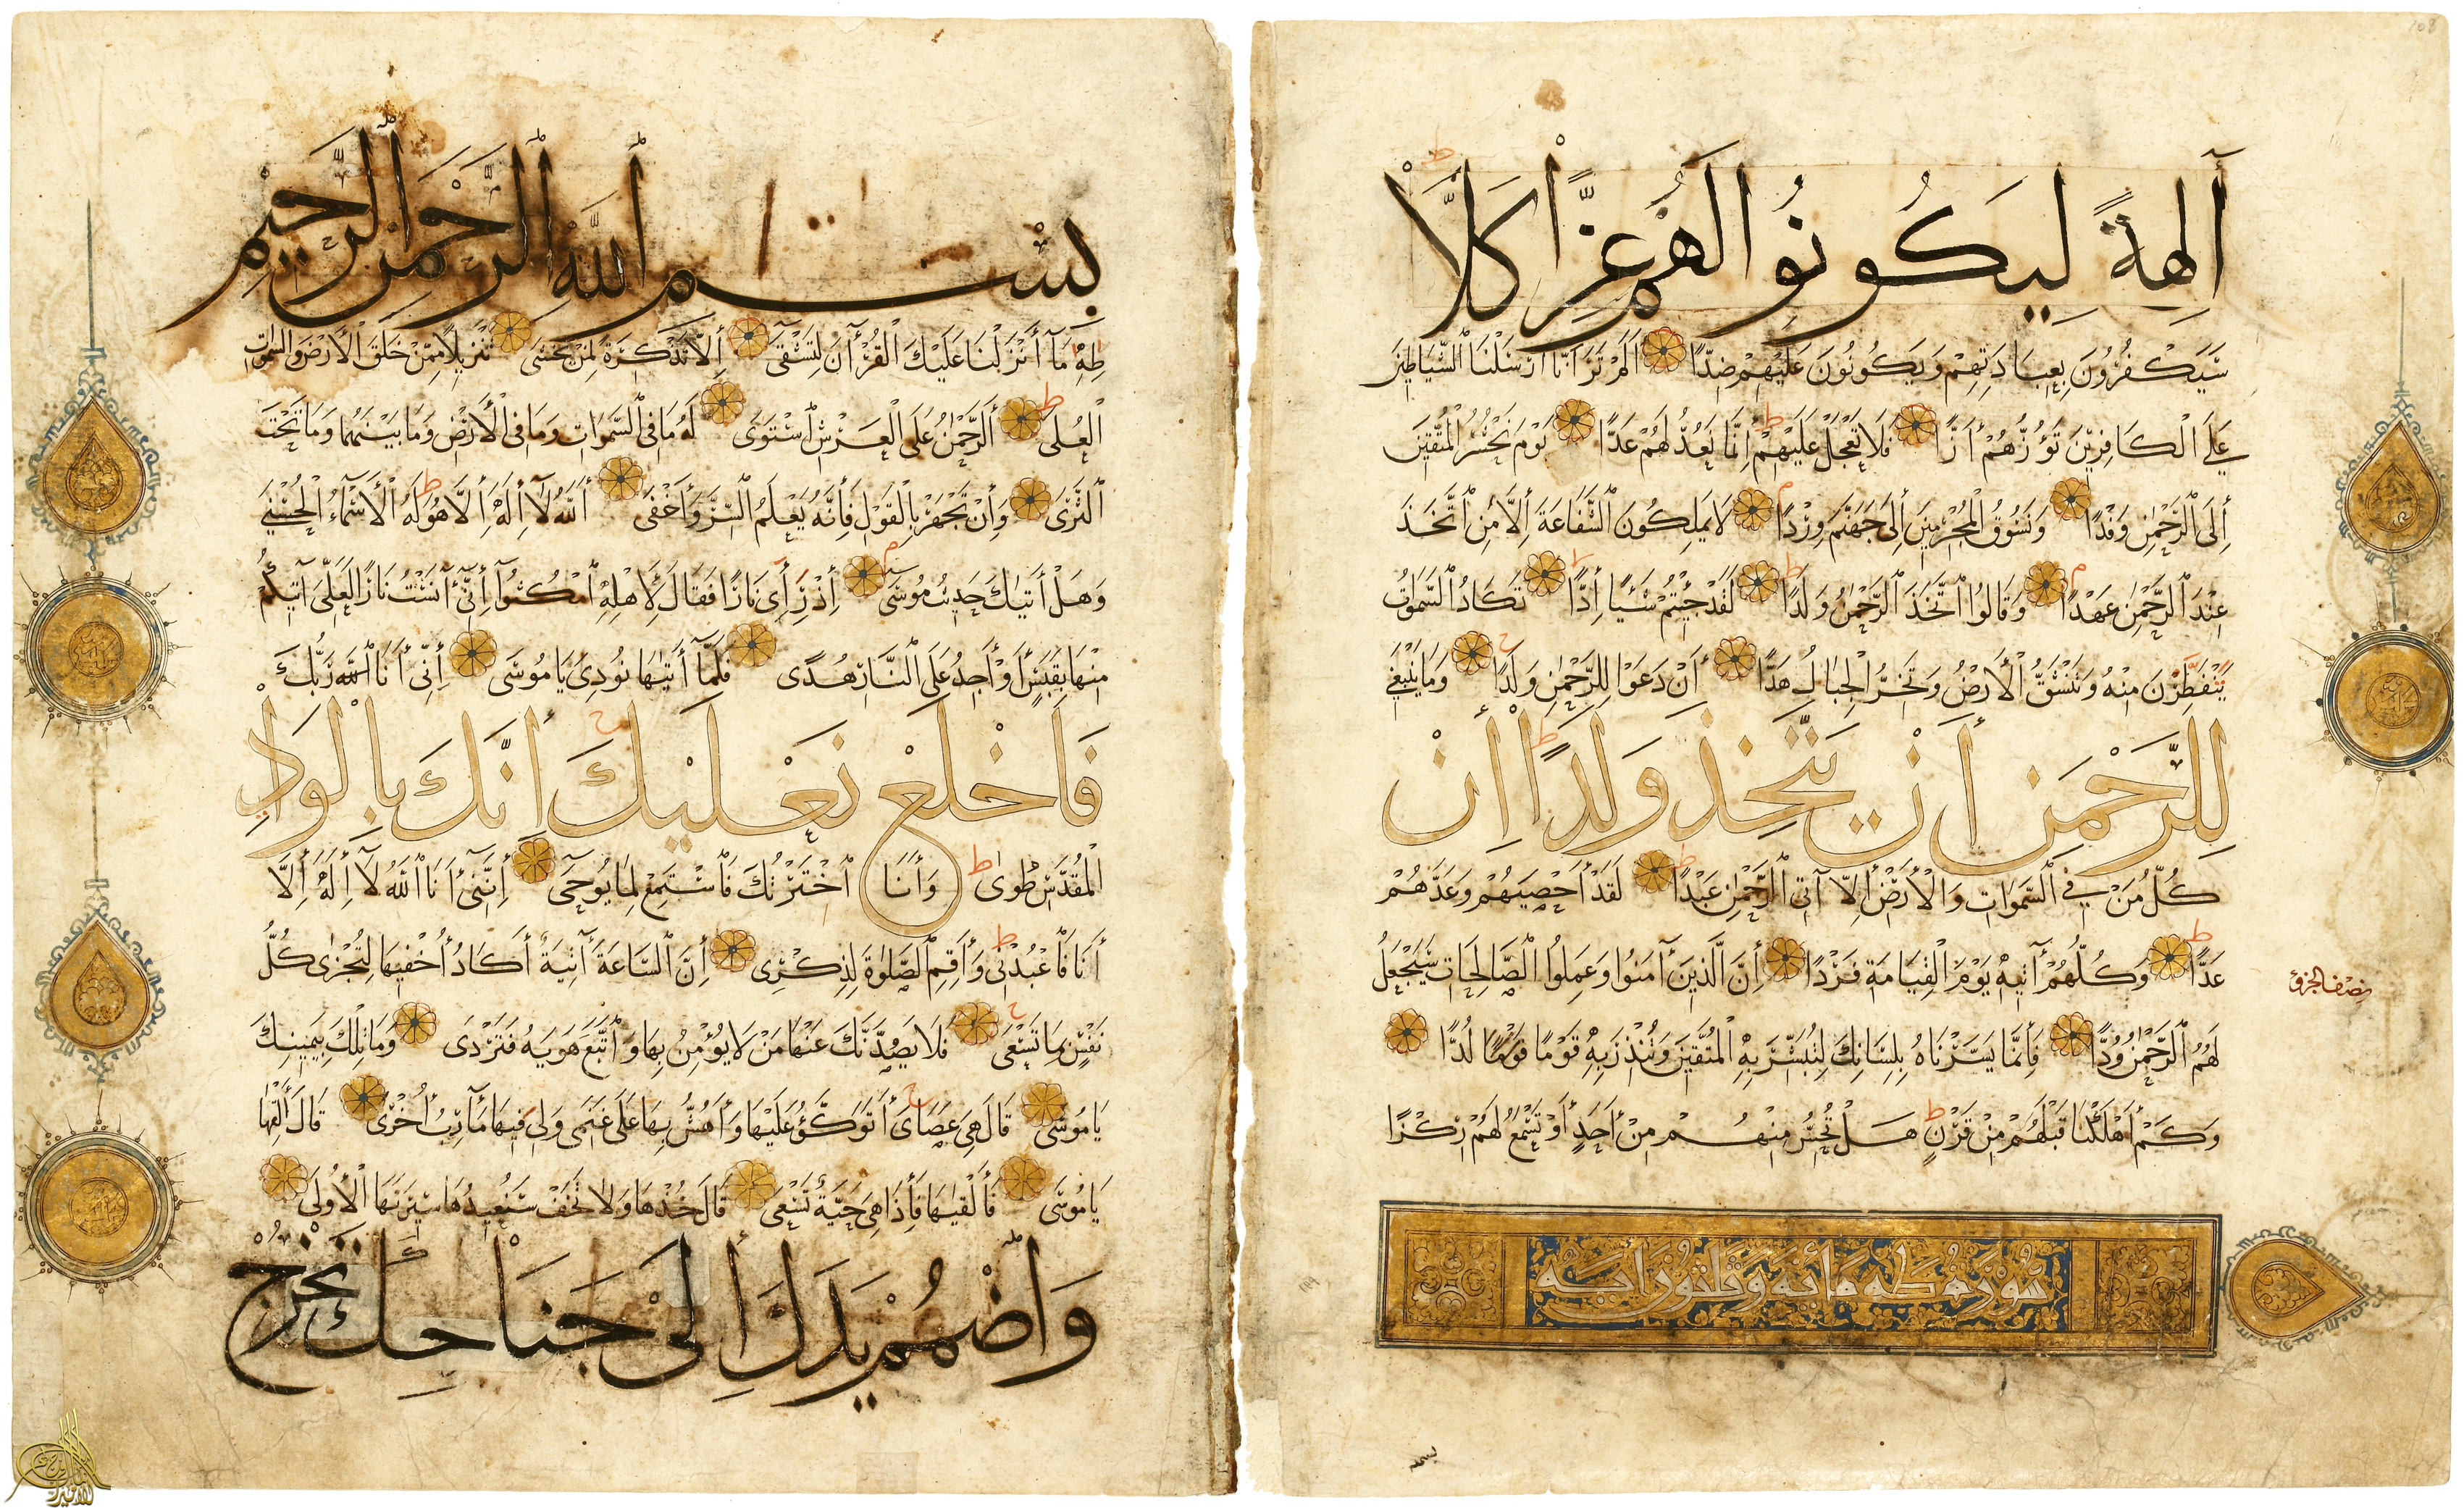 آلِهَةً لِيَكُونُوا لَهُمْ عِزًّا كَلَّا
سَيَكْفُرُونَ بِعِبَادَتِهِمْ وَيَكُونُونَ عَلَيْهِمْ ضِدًّا أَلَمْ تَرَ أَنَّا أَرْسَلْنَا الشَّيَاطِينَ
عَلَى الْكَافِرِينَ تَؤُزُّهُمْ أَزًّا فَلَا تَعْجَلْ عَلَيْهِمْ إِنَّمَا نَعُدُّ لَهُمْ عَدًّا يَوْمَ نَحْشُرُ الْمُتَّقِينَ
إِلَى الرَّحْمٰنِ وَفْدًا وَنَسُوقُ الْمُجْرِمِينَ إِلَى جَهَنَّمَ وِرْدًا لَا يَمْلِكُونَ الشَّفَاعَةَ إِلَّا مَنِ اتَّخَذَ
عِنْدَ الرَّحْمٰنِ عَهْدًا وَقَالُوا اتَّخَذَ الرَّحْمٰنُ وَلَدًا لَقَدْ جِئْتُمْ شَيْئًا إِدًّا تَكَادُ السَّمٰوَاتُ
يَنْفَطِرْنَ مِنْهُ وَتَنْشَقُّ الْأَرْضُ وَتَخِرُّ الْجِبَالُ هَدًّا أَنْ دَعَوْا لِلرَّحْمٰنِ وَلَدًا وَمَا يَنْبَغِي
لِلرَّحْمَنِ أَنْ يَتَّخِذَ وَلَدًا إِنْ
كُلُّ مَنْ فِي السَّمٰوَاتِ وَالْأَرْضِ إِلَّا آتِي الرَّحْمٰنِ عَبْدًا لَقَدْ أَحْصَيهُمْ وَعَدَّهُمْ
عَدًّا وَكُلُّهُمْ آتِيهِ يَوْمَ الْقِيَامَةِ فَرْدًا إِنَّ الَّذِينَ آمَنُوا وَعَمِلُوا الصَّالِحَاتِ سَيَجْعَلُ
نصف الجزؤ
لَهُمُ الرَّحْمٰنُ وُدًّا فَإِنَّمَا يَسَّرْنَاهُ بِلِسَانِكَ لِتُبَشِّرَ بِهِ الْمُتَّقِينَ وَتُنْذِرَ بِهِ قَوْمًا قَوْمًا لُدًّا
وَكَمْ أَهْلَكْنَا قَبْلَهُمْ مِنْ قَرْنٍ هَلْ تُحِسُّ مِنْهُمْ مِنْ أَحَدٍ أَوْ تَسْمَعُ لَهُمْ رِكْزًا
سورة طه مائة وثلثون آية
بِسْمِ اللهِ الرَّحْمَنِ الرَّحِيمِ
طه مَا أَنْزَلْنَا عَلَيْكَ الْقُرْآنَ لِتَشْقَى إِلَّا تَذْكِرَةً لِمَنْ يَخْشَى تَنْزِيلًا مِمَّنْ خَلَقَ الْأَرْضَ وَالسَّمٰوَاتِ
الْعُلَى الرَّحْمٰنُ عَلَى الْعَرْشِ اسْتَوَى لَهُ مَا فِي السَّمٰوَاتِ وَمَا فِي الْأَرْضِ وَمَا بَيْنَهُمَا وَمَا تَحْتَ
الثَّرَى وَإِنْ تَجْهَرْ بِالْقَوْلِ فَإِنَّهُ يَعْلَمُ السِّرَّ وَأَخْفَى اللهُ لَا إِلٰهَ إِلَّا هُوَ لَهُ الْأَسْمَاءُ الْحُسْنَى
وَهَلْ أَتٰيكَ حَدِيثُ مُوسَى إِذْ رَأَى نَارًا فَقَالَ لِأَهْلِهِ امْكُثُوا إِنِّي آنَسْتُ نَارًا لَعَلِّي آتِيكُمْ
مِنْهَا بِقَبَسٍ أَوْ أَجِدُ عَلَى النَّارِ هُدًى فَلَمَّا أَتٰيهَا نُودِيَ يَا مُوسَى إِنِّي أَنَا اللهُ رَبُّكَ
فَاخْلَعْ نَعْلَيْكَ إِنَّكَ بِالْوَادِ
الْمُقَدَّسِ طُوًى وَأَنَا اخْتَرْتُكَ فَاسْتَمِعْ لِمَا يُوحَى إِنَّنِي أَنَا اللهُ لَا إِلٰهَ إِلَّا
أَنَا فَاعْبُدْنِي وَأَقِمِ الصَّلٰوةَ لِذِكْرِي إِنَّ السَّاعَةَ آتِيَةٌ أَكَادُ أُخْفِيهَا لِتُجْزَى كُلُّ
نَفْسٍ بِمَا تَسْعَى فَلَا يَصُدَّنَّكَ عَنْهَا مَنْ لَا يُؤْمِنُ بِهَا وَاتَّبَعَ هَوٰيهُ فَتَرْدَى وَمَا تِلْكَ بِيَمِينِكَ
يَا مُوسَى قَالَ هِيَ عَصَايَ أَتَوَكَّؤُ عَلَيْهَا وَأَهُشُّ بِهَا عَلَى غَنَمِي وَلِيَ فِيهَا مَآرِبُ أُخْرَى قَالَ أَلْقِهَا
يَا مُوسَى فَأَلْقٰيهَا فَإِذَا هِيَ حَيَّةٌ تَسْعَى قَالَ خُذْهَا وَلَا تَخَفْ سَنُعِيدُهَا سِيرَتَهَا الْأُولَى
وَاضْمُمْ يَدَكَ إِلَى جَنَاحِكَ تَخْرُجْ